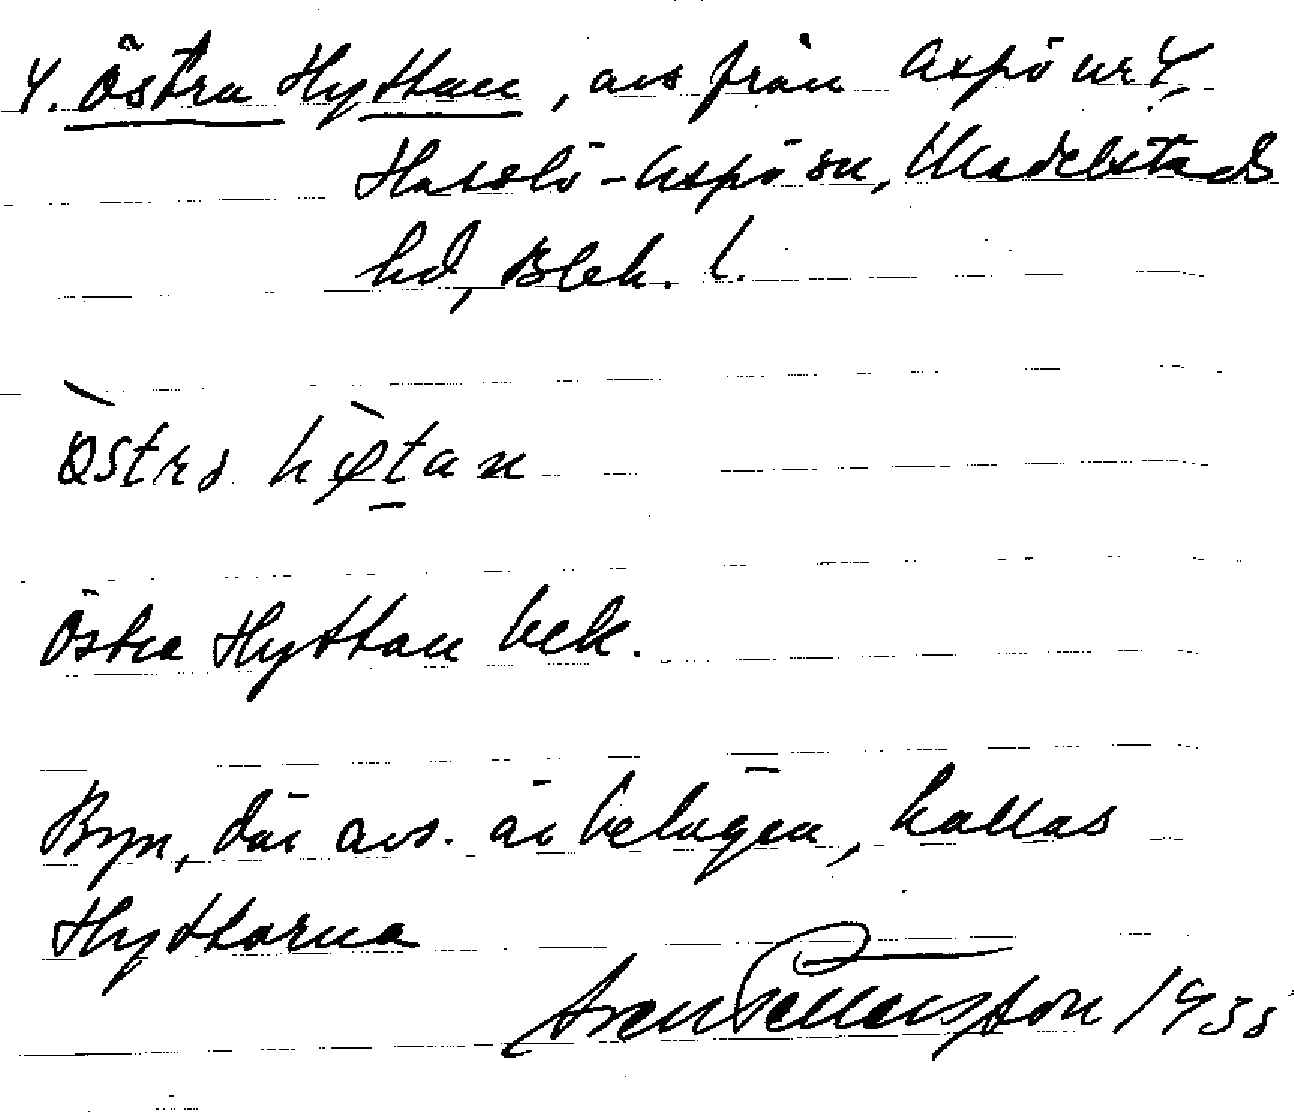 4. Östra Hyttan, avs från Aspö nr 4,
Hasslö-Aspö sn, Medelstads
hd, Blek. l.
hø̀tan
Östra Hyttan bek.
Byn, där avs. är belägen, kallas
Hyttorna
Sven Pettersson 19